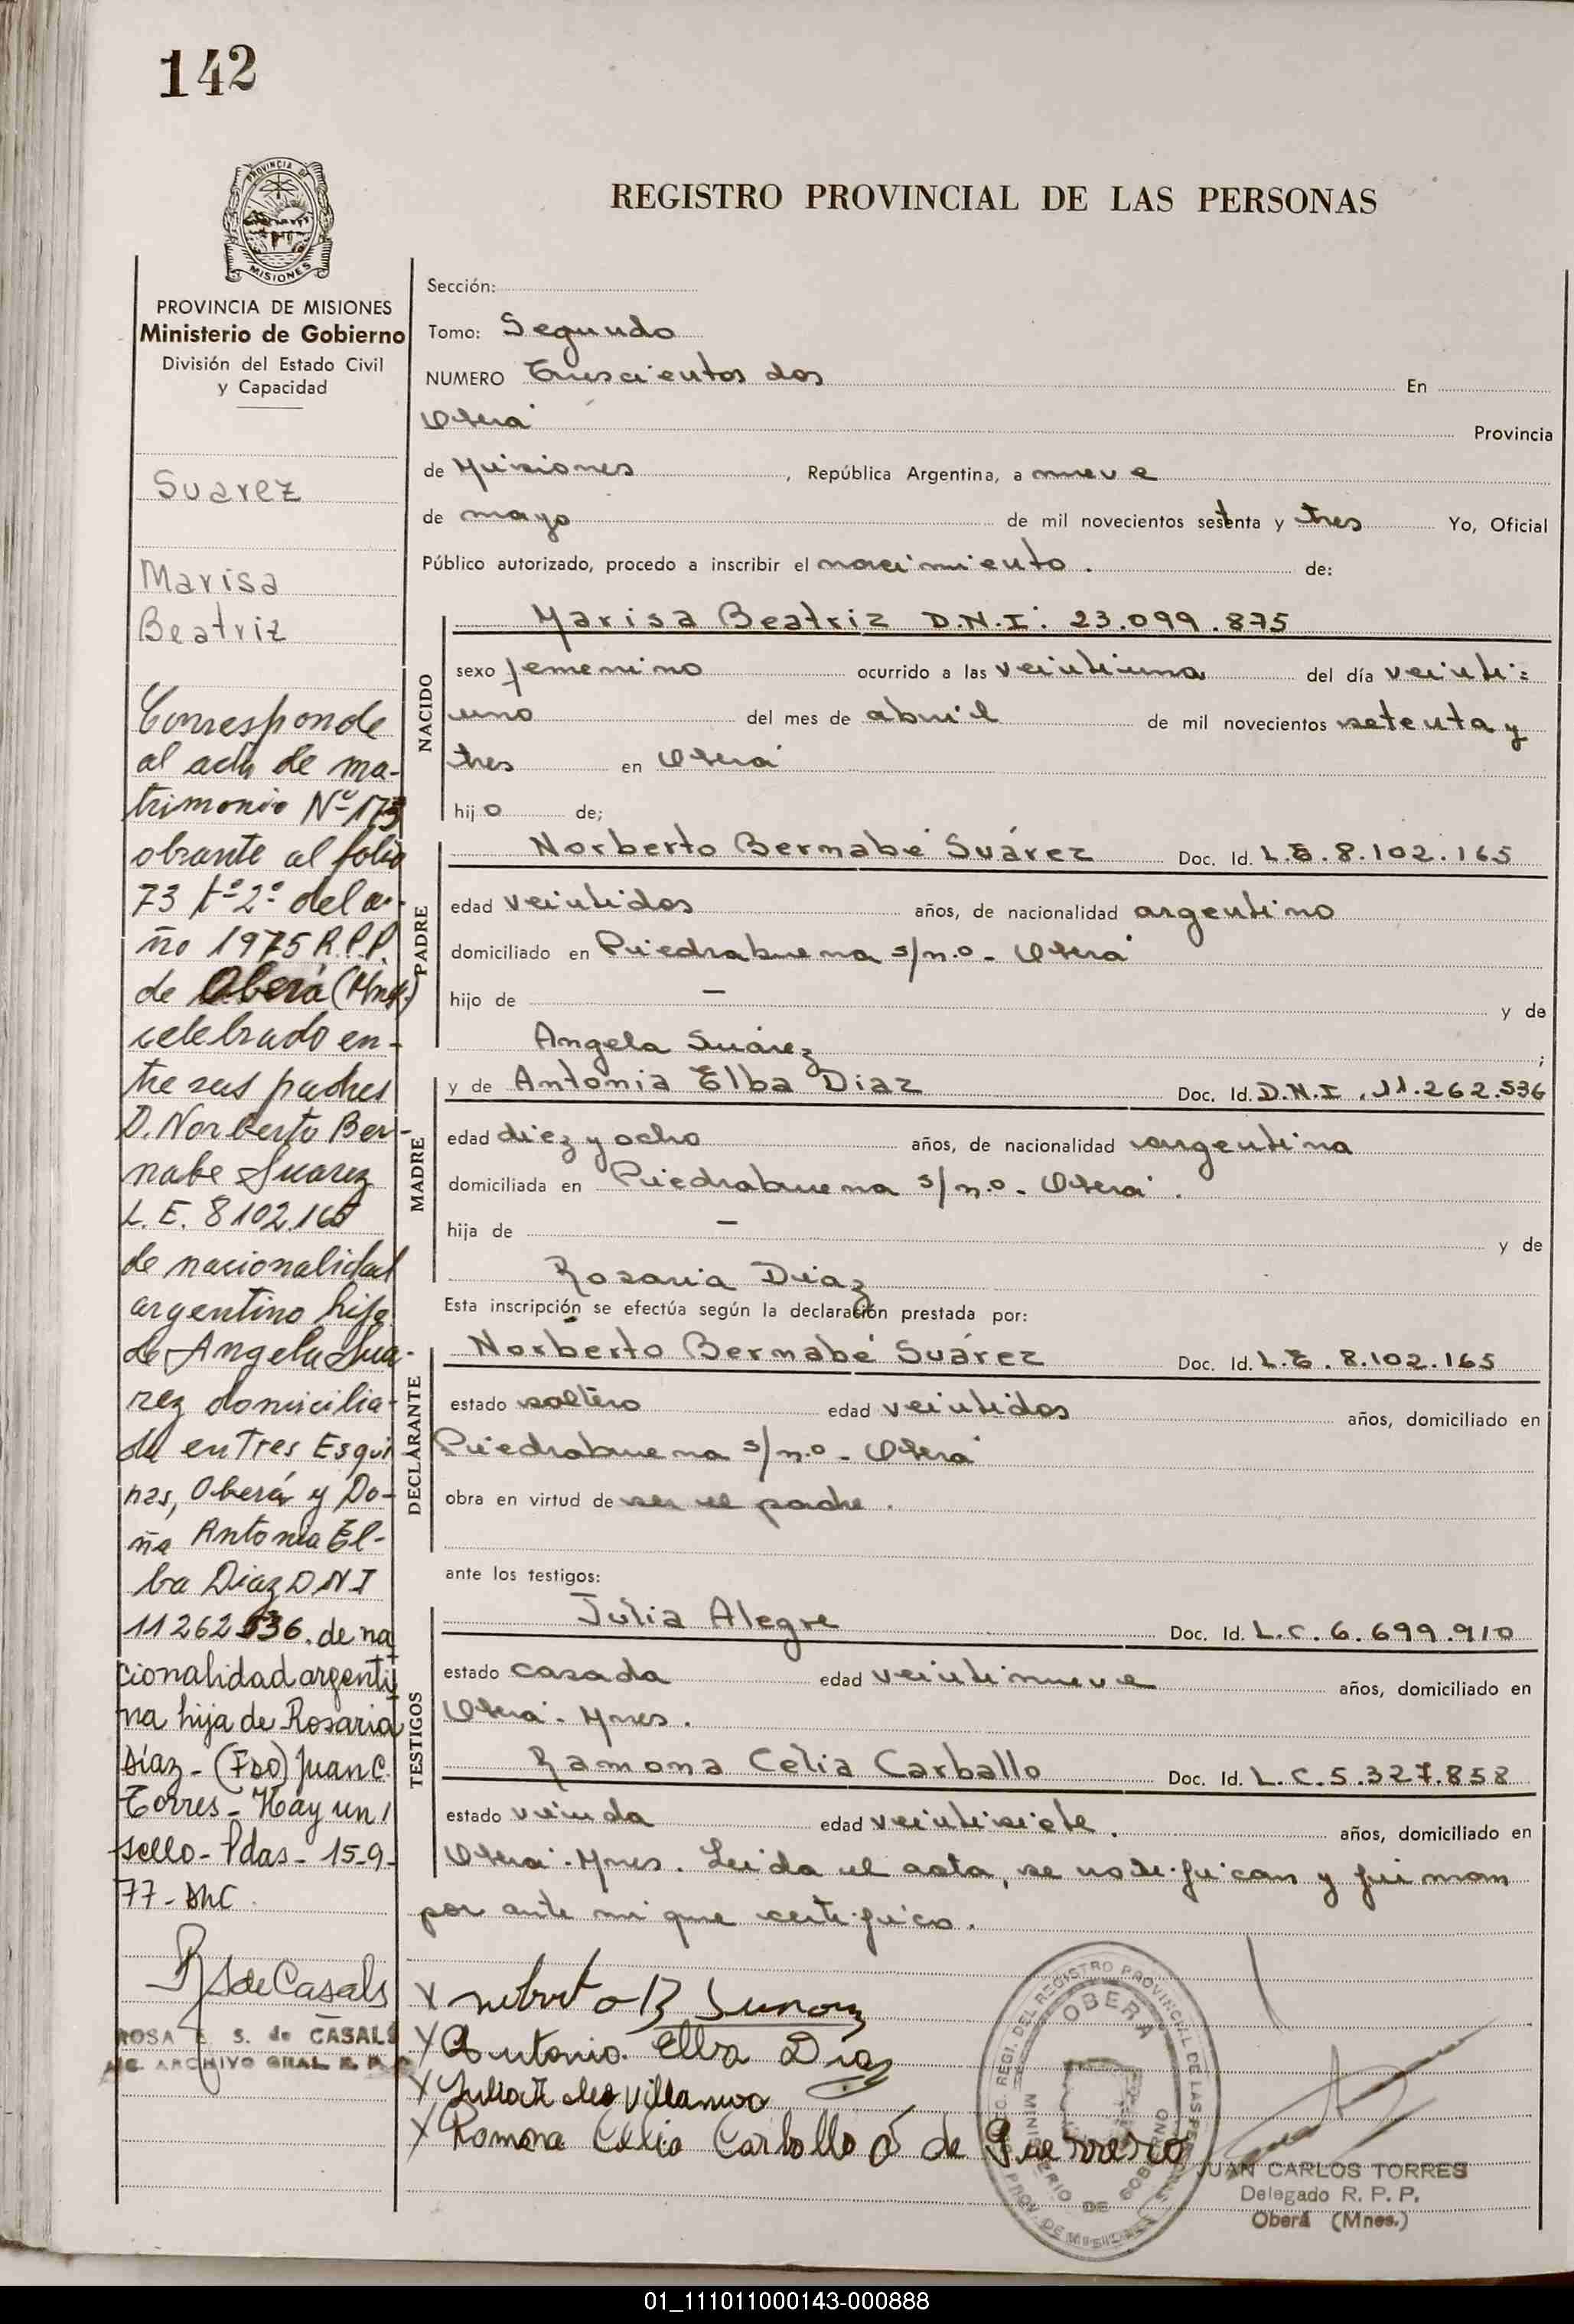 142
PROVINCIA DE
MISIONES
REGISTRO PROVINCIAL DE LAS PERSONAS
PROVINCIA DE MISIONES
Ministerio de Gobierno
División del Estado Civil
y Capacidad
Suarez
Marisa
Beatriz
Corresponde
al acta de ma-
trimonio Nº 173
obrante al folio
73 tº 2º del a-
ño 1975 R.P.P.
de Oberá (Mnes.)
celebrado en-
tre sus padres
D. Norberto Ber-
nabe Suarez
L. E. 8102.165
de nacionalidad
argentino hijo
de Angela Sua-
rez domicilia-
da en Tres Esqui
nas, Oberá y Do-
ña Antonia El-
ba Diaz DNI
11262536. de na
cionalidad argenti
na hija de Rosaria
Díaz - (Fdo) Juan C.
Torres - Hay un
sello - Pdas - 15-9-
77 -
S de Casals
ROSA E. S. de CASALS
ARCHIVO GRAL R. P. P.
Sección:
Tomo: Segundo
NUMERO Trescientos dos En
Oberá Provincia
de Misiones, República Argentina, a nueve
de mayo de mil novecientos setenta y tres Yo, Oficial
Público autorizado, procedo a inscribir el nacimiento. de:
NACIDO
Marisa Beatriz D.N.I: 23.099.875
sexo femenino ocurrido a las veintiuna del día veinti=
uno del mes de abril de mil novecientos setenta y
tres en Oberá
hijo de;
PADRE
Norberto Bernabé Suárez Doc. Id. L.E. 8.102.165
edad veintidos años, de nacionalidad argentino
domiciliado en Piedrabuena s/n.o - Oberá
hijo de — y de
Angela Suárez ;
MADRE
y de Antonia Elba Diaz Doc. Id. D.N.I. 11.262.536
edad diez y ocho años, de nacionalidad argentina
domiciliada en Piedrabuena s/n.o - Oberá.
hija de — y de
Rosaria Diaz
Esta inscripción se efectúa según la declaración prestada por:
DECLARANTE
Norberto Bernabé Suárez Doc. Id. L.E. 8.102.165
estado soltero edad veintidos años, domiciliado en
Piedrabuena s/n.o - Oberá
obra en virtud de ser el padre.
ante los testigos:
TESTIGOS
Julia Alegre Doc. Id. L.C. 6.699.910
estado casada edad veintinueve años, domiciliado en
Oberá - Mnes.
Ramona Celia Carballo Doc. Id. L.C. 5.327.858
estado viuda edad veintisiete. años, domiciliado en
Oberá - Mnes. Leida el acta, se notifican y firman
por ante mi que certifico.
X B Suarez
X Antonia Elba Diaz
X Julia de Villanueva
X Ramona Celia Carballo de Guerrero
REGISTRO PROVINCIAL DE LAS PERSONAS
OBERA
MINISTERIO DE GOBIERNO
PROV. DE MISIONES
JUAN CARLOS TORRES
Delegado R. P. P.
Oberá (Mnes.)
01_111011000143-000888